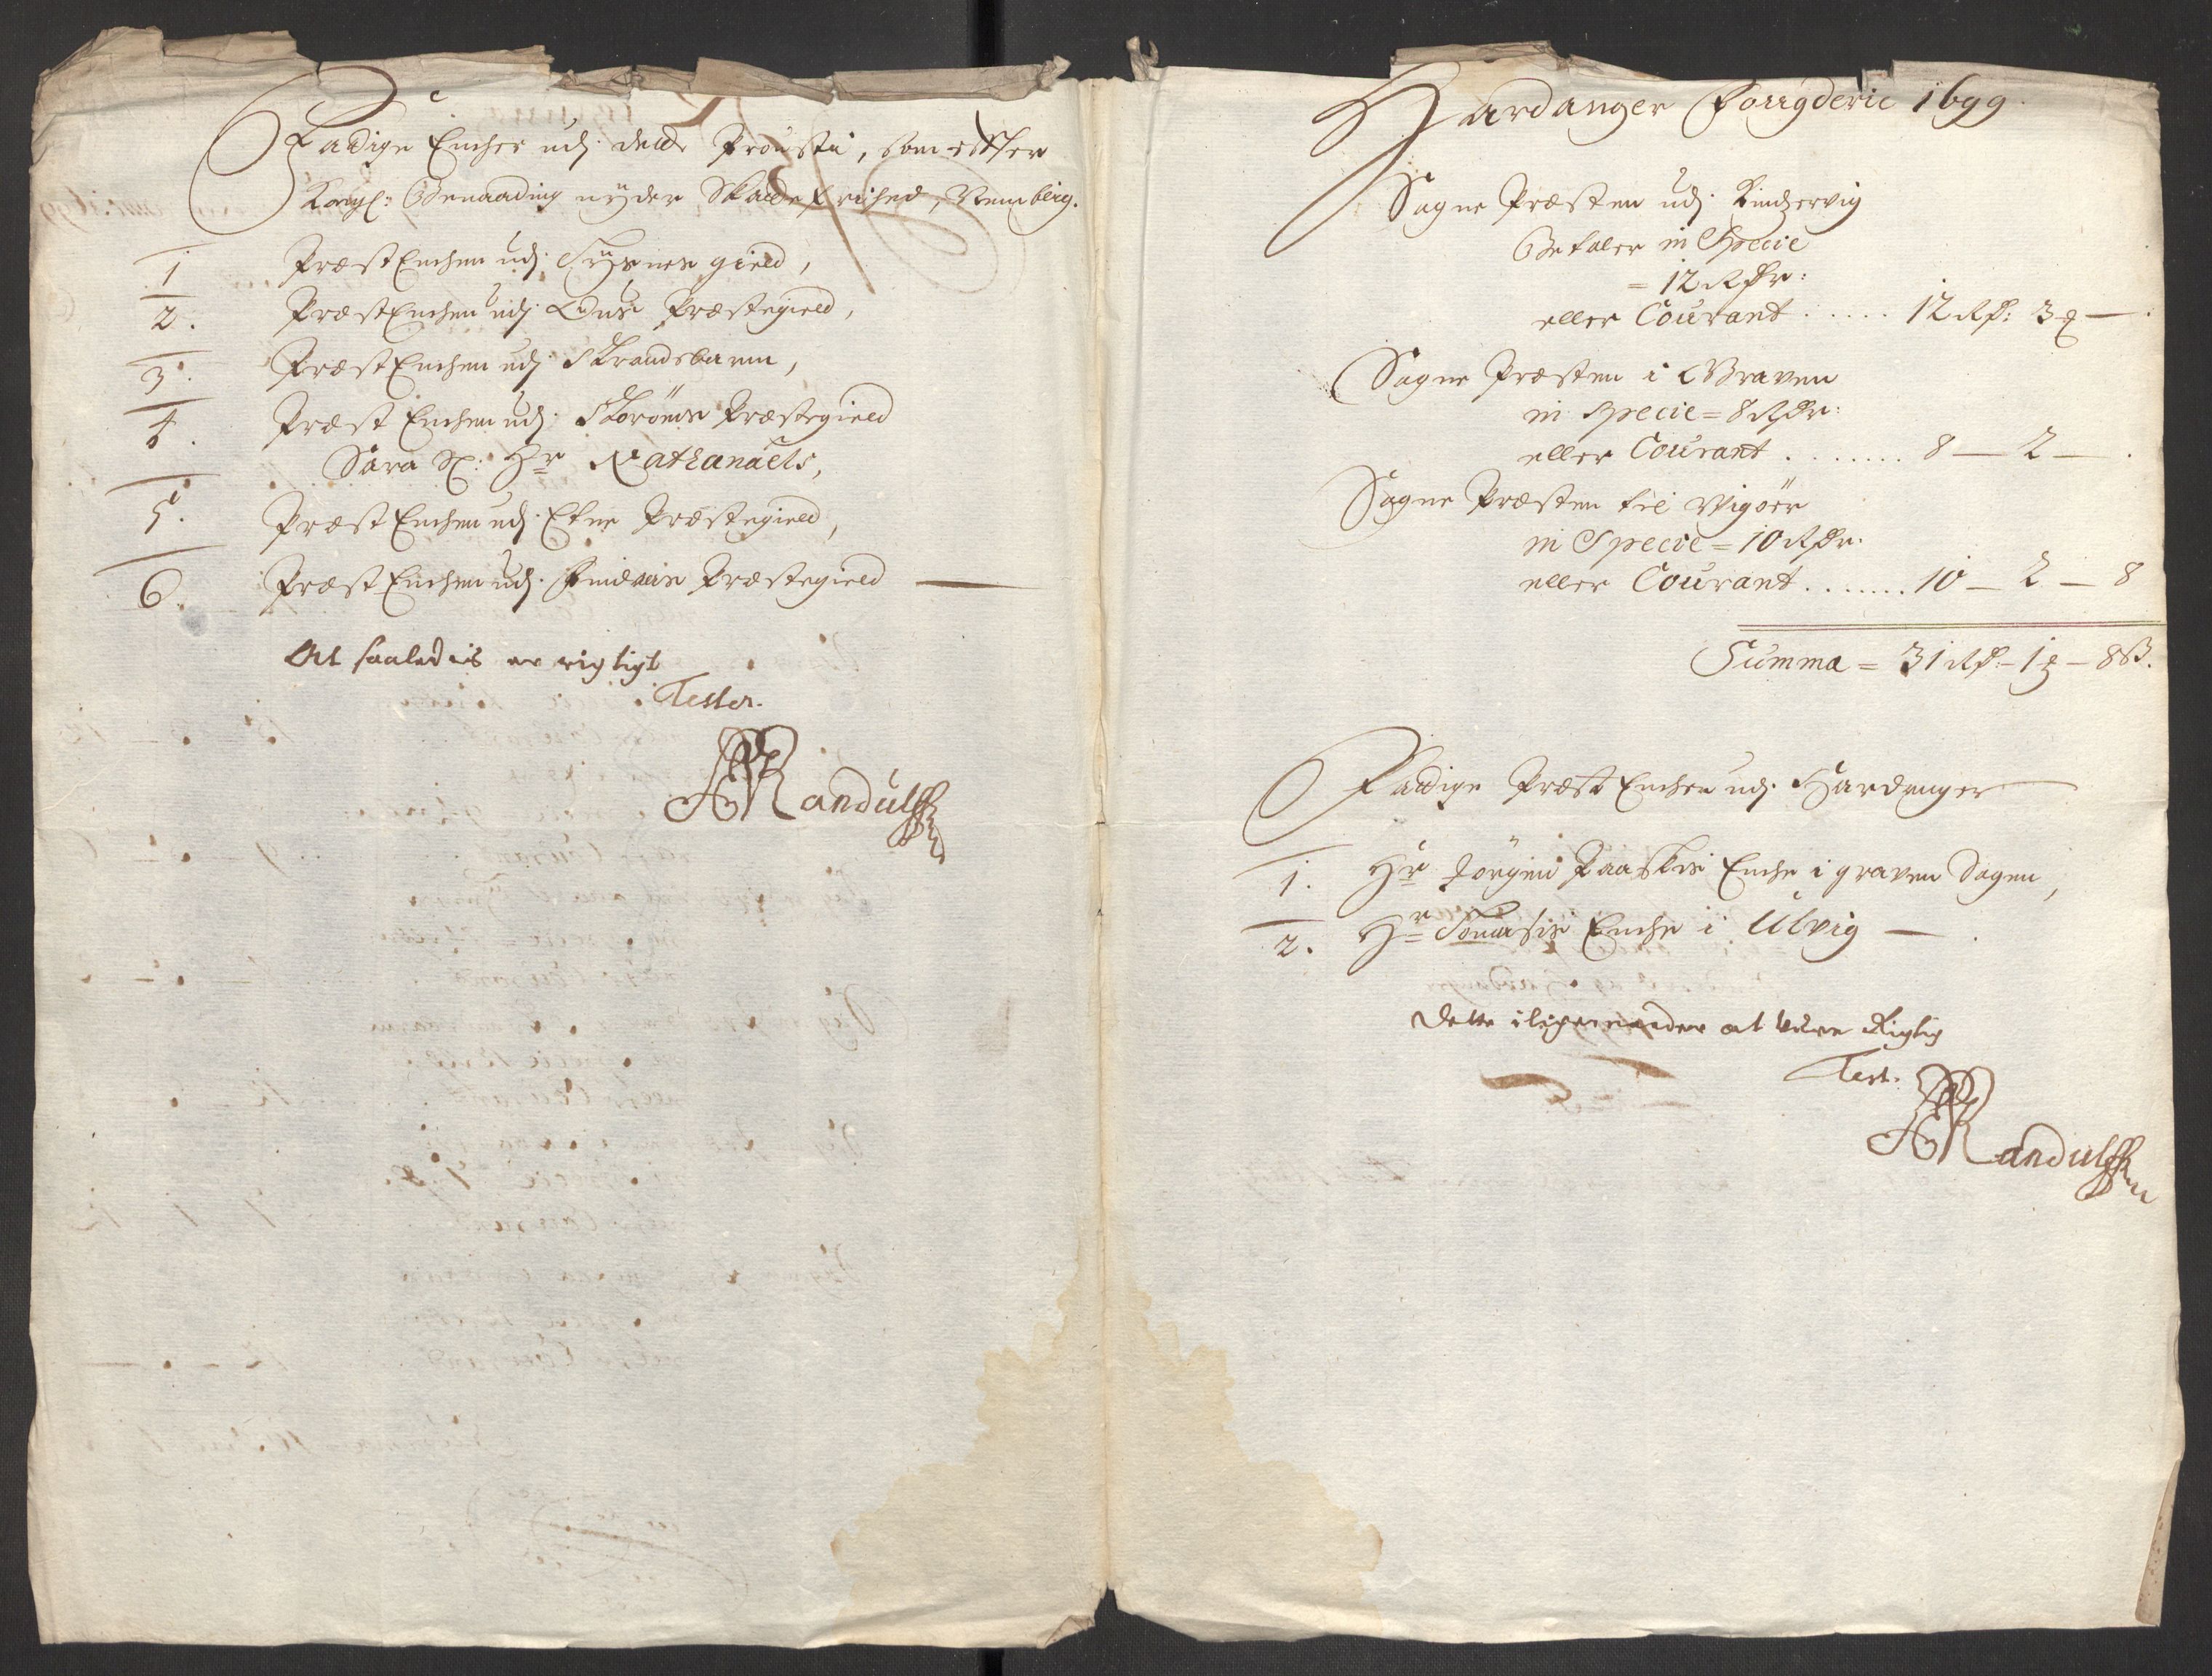 Fattige Encher udj dette Prousti, som effter
Kongl: Benaading nyder Skatte frihed, Nemblig.
1 PræstEnchen udj Tysnes gield,
2. PræstEnchen udj Ous Præstegield,
3. PræstEnchen udj Strandebarm,
4. Præst Enchen udj Storöens Præstegield
Sara Sl: Hr Nathanaels,
5. Præst Enchen udj Etne Præstegield,
6. Præst Enchen udj Findaas Præstegield
At saaledis er rigtigt
Tester.
Randulff
Hardanger Fougderie 1699.
Sogne Præsten udj Kindzervig
Betaler in Specie
= 12 Rdr:
eller Courant ..... 12 Rd: 3 —
Sogne Præsten i Graven
in specie = 8 Rdr:
eller Courant ....... 8 — 2 — .
Sogne Præsten til Vigöer
in Specie = 10 Rdr.
eller Courant ....... 10 — 2 — 8
Summa = 31 Rd: — 1 — 8 ß.
Fattige Præst Encher udj Hardanger
1. Hr Jörgen Raaskis Enche i graven Sogen,
2. Hr Enche i Ulvig — .
Dette at være Rigtig
Test.
Randulff